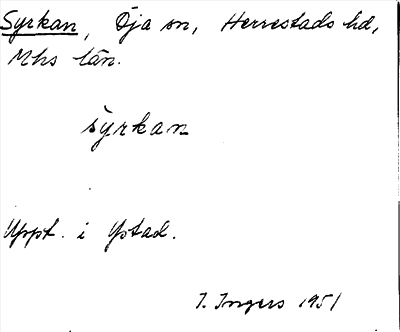 Syrkan, Öja sn, Herrestads hd,
Mhs län.
s̀yrkan
Uppt. i Ystad.
I. Ingers 1951